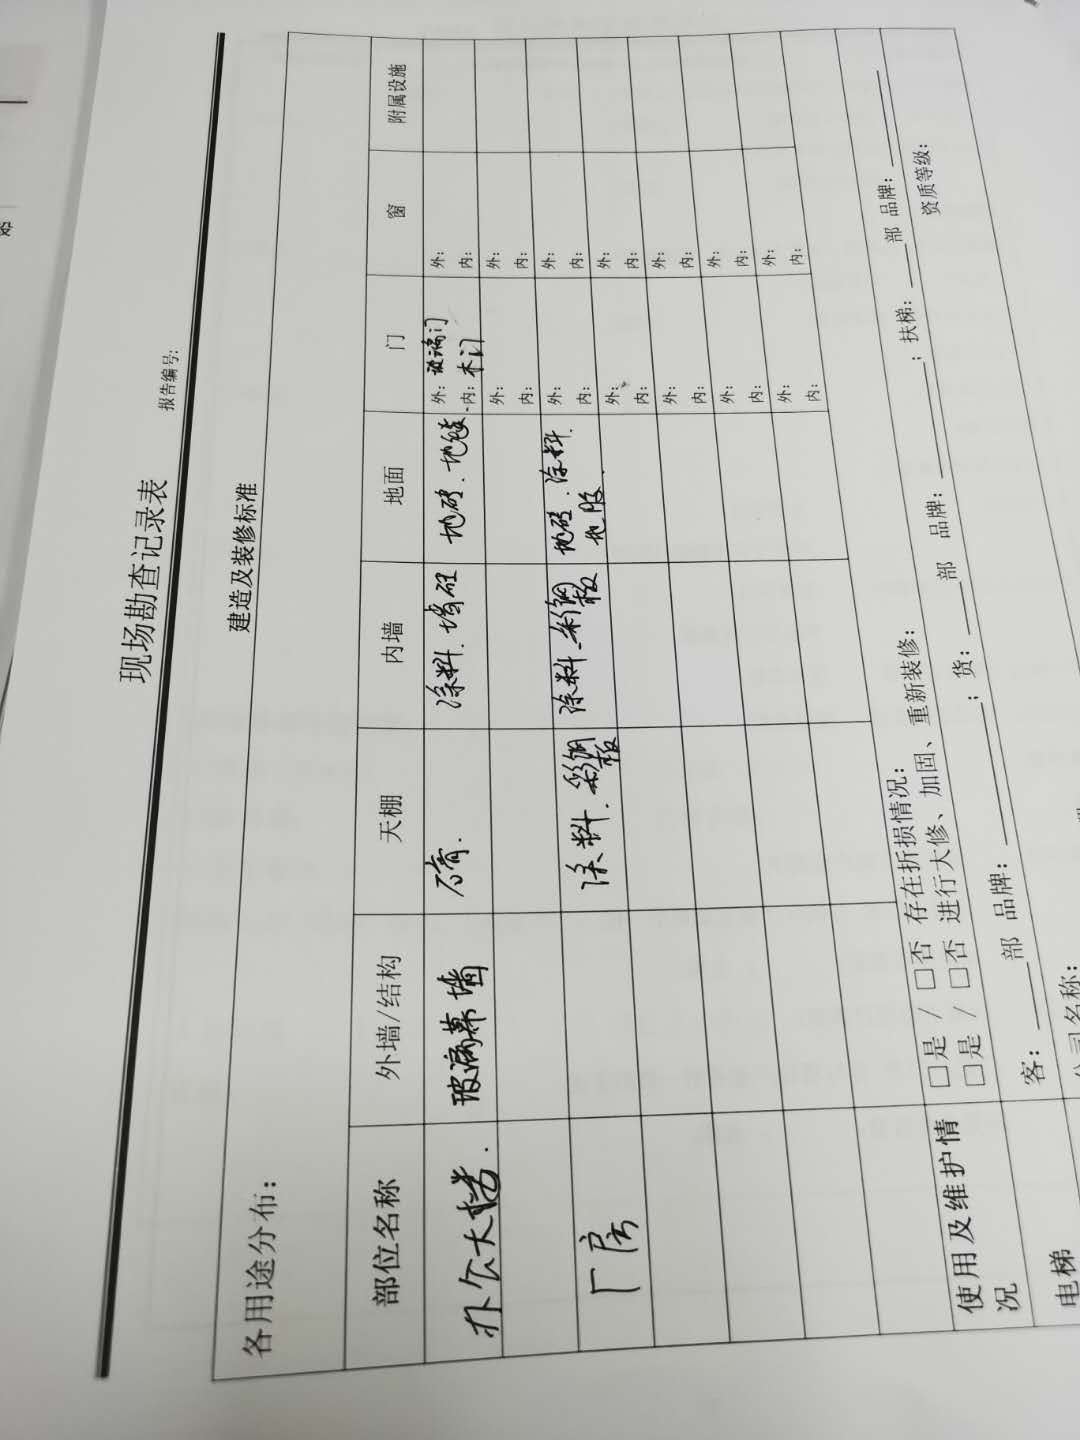 现场勘查记录表
报告编号:
建造及装修标准
各用途分布:
部位名称 外墙/结构 天棚 内墙 地面 门 窗 附属设施
办公大楼. 玻璃幕墙 石膏. 涂料. 墙砖 地砖. 地毯. 外: 玻璃门 外:
内: 木门 内:
外: 外:
内: 内:
厂房 涂料. 彩钢板 涂料. 彩钢板 地砖. 涂料. 外: 外:
地胶. 内: 内:
外: 外:
内: 内:
外: 外:
内: 内:
外: 外:
内: 内:
外: 外:
内: 内:
使用及维护情况 □是 / □否 存在折损情况:
□是 / □否 进行大修、加固、重新装修:
电梯 客: 部 品牌: ; 货: 部 品牌: ; 扶梯: 部 品牌:
公司名称: 资质等级: